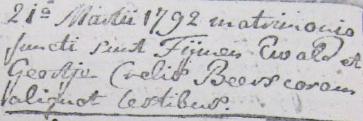 21ª Martii 1792 matrimonio
juncti sunt Tijmen Ewald et
Geertje Crelis Beers coram
aliquot testibus.